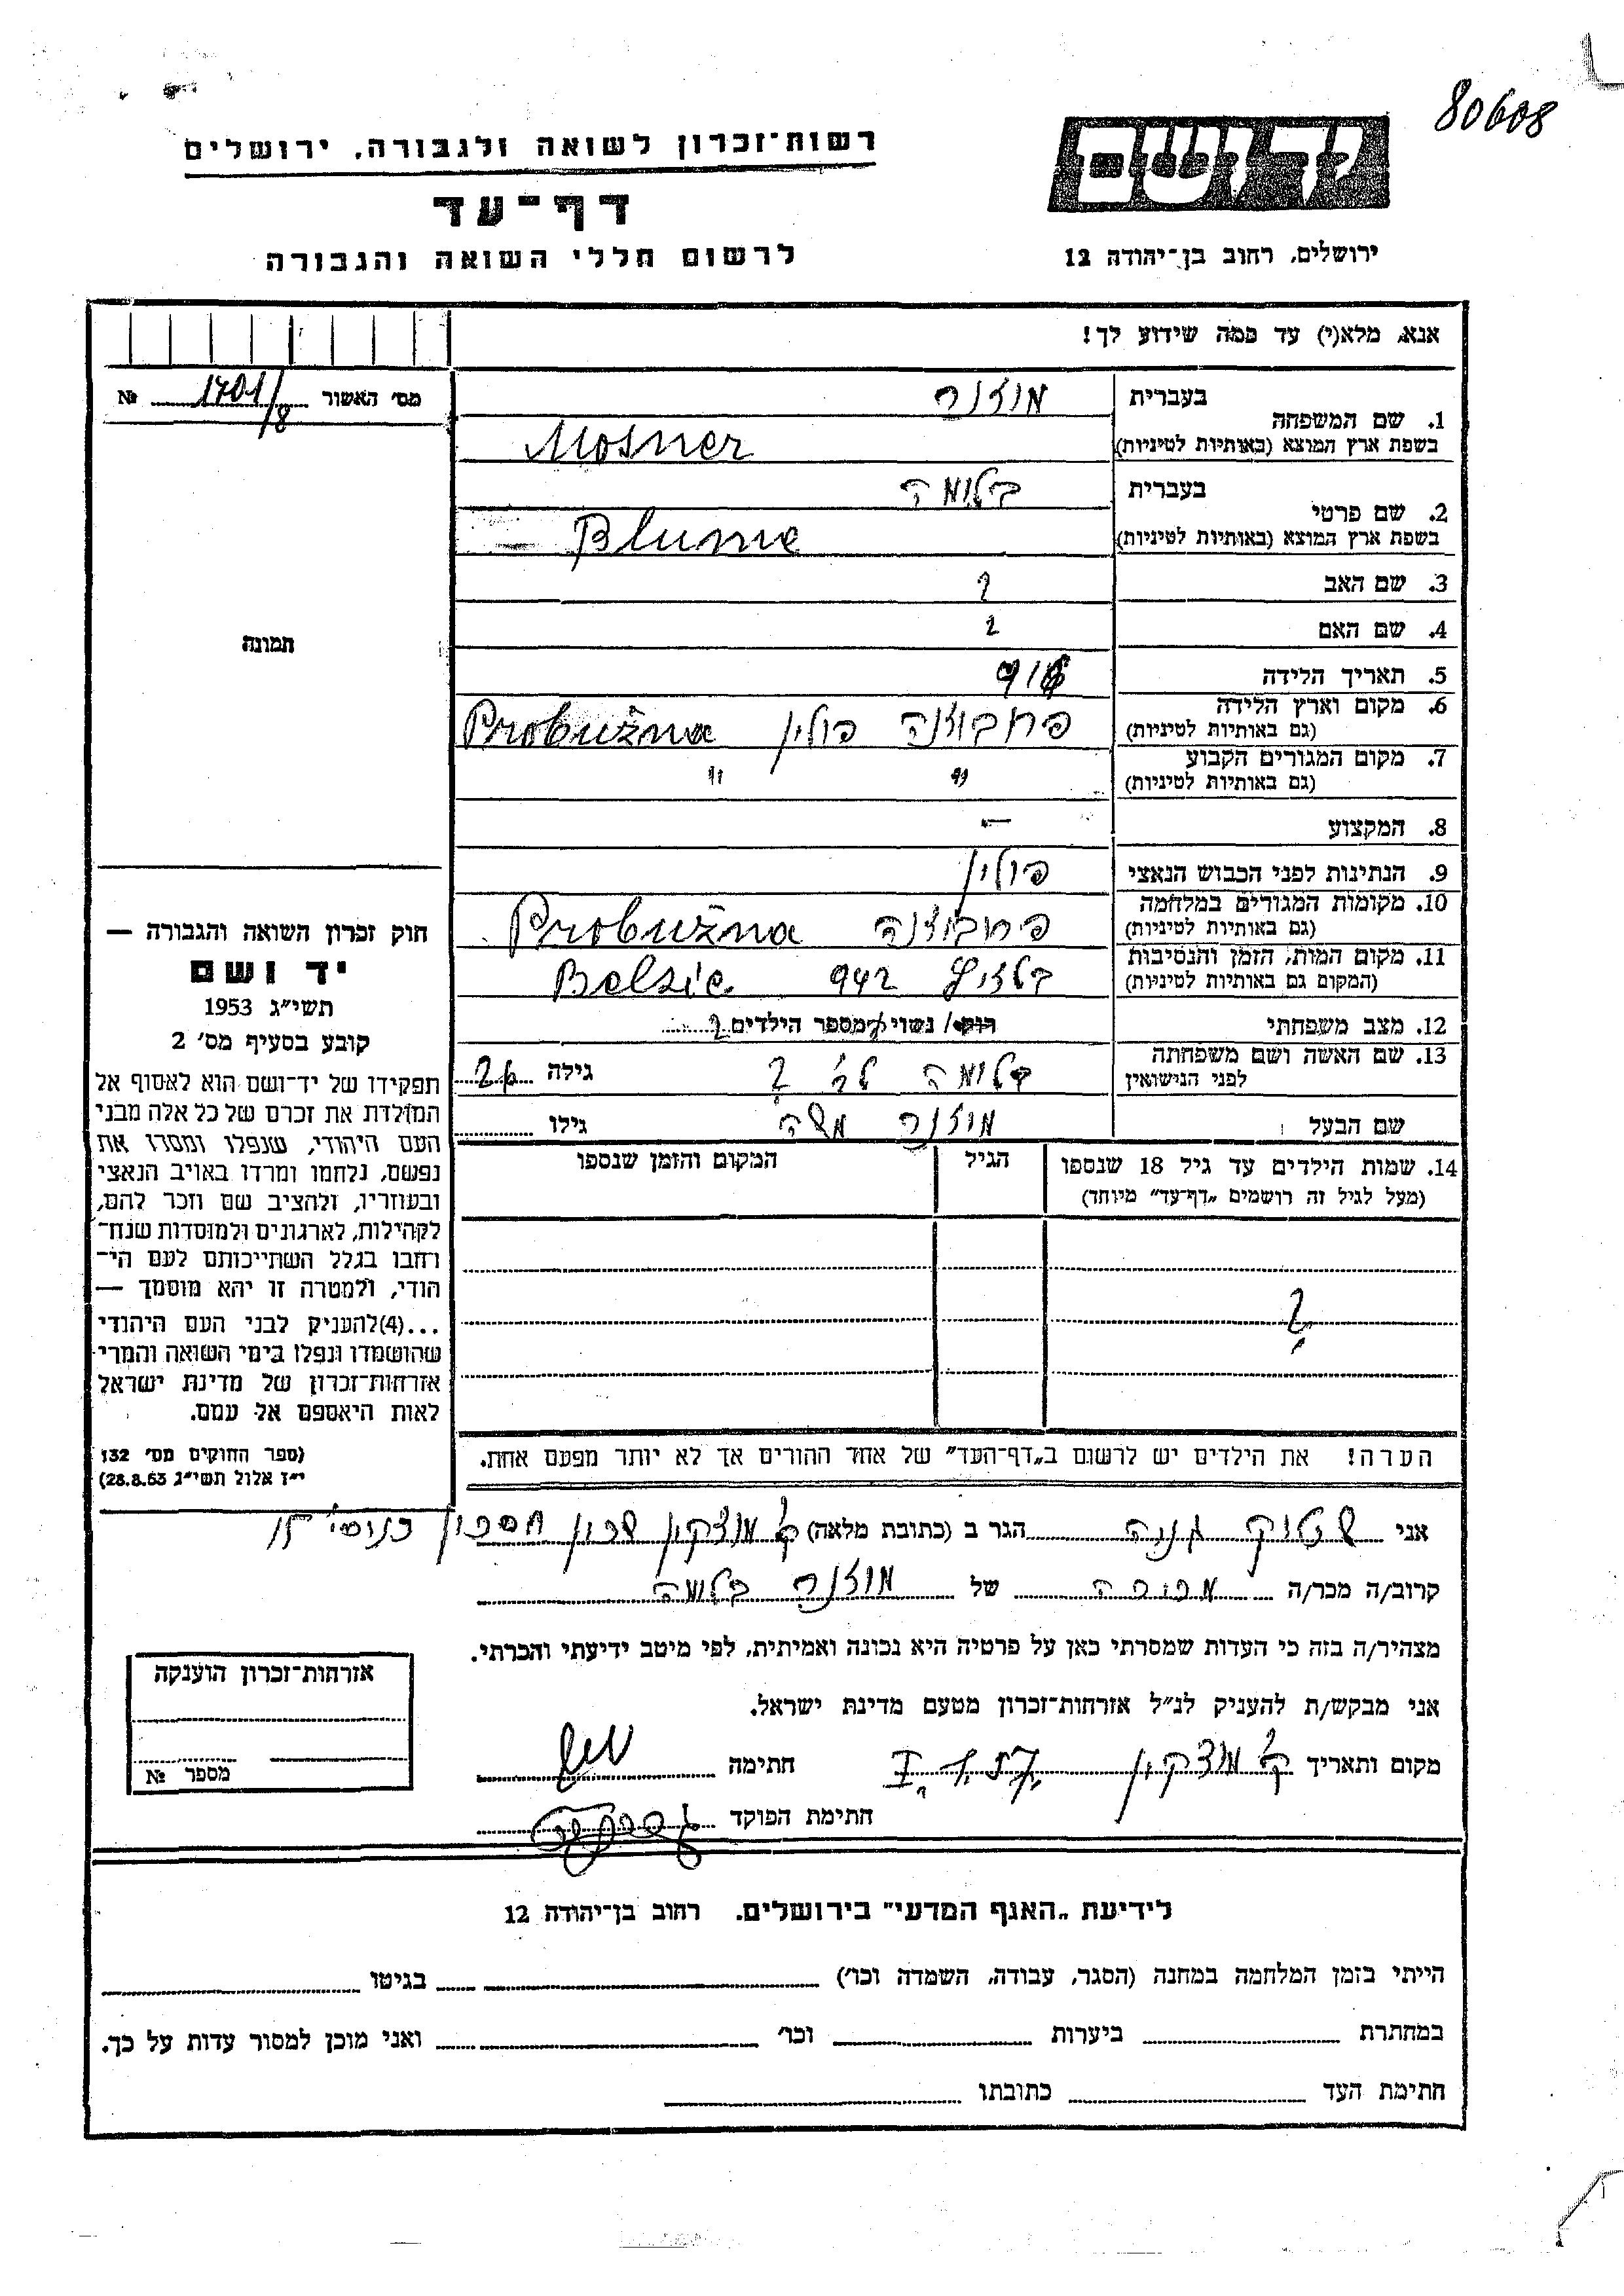 80608
יד ושם
רשות־זכרון לשואה ולגבורה, ירושלים
דף־עד
לרשום חללי השואה והגבורה
ירושלים, רחוב בן־יהודה 12
אנא, מלא(י) עד כמה שידוע לך!
מס׳ האשור 1701/8 №
בעברית מוזנר
1. שם המשפחה
בשפת ארץ המוצא (באותיות לטיניות) Mosner
בעברית בלומה
2. שם פרטי
בשפת ארץ המוצא (באותיות לטיניות) Blume
3. שם האב ?
4. שם האם ?
תמונה
5. תאריך הלידה
6. מקום וארץ הלידה
(גם באותיות לטיניות) פרבוזנה פולין Probużna
7. מקום המגורים הקבוע
(גם באותיות לטיניות) " "
8. המקצוע —
9. הנתינות לפני הכבוש הנאצי פולין
10. מקומות המגורים במלחמה
(גם באותיות לטיניות) פרבוזנה Probużna
11. מקום המות, הזמן והנסיבות
(המקום גם באותיות לטיניות) 942 Belzic
12. מצב משפחתי רוק/ נשוי/ מספר הילדים ?
13. שם האשה ושם משפחתה
לפני הנישואין בלומה לב׳ ? גילה 26
שם הבעל מוזנר משה גילו
14. שמות הילדים עד גיל 18 שנספו
(מעל לגיל זה רושמים „דף־עד" מיוחד)
הגיל
המקום והזמן שנספו
?
הערה! את הילדים יש לרשום ב„דף־העד" של אחד ההורים אך לא יותר מפעם אחת.
חוק זכרון השואה והגבורה —
יד ושם
תשי״ג 1953
קובע בסעיף מס׳ 2
תפקידו של יד־ושם הוא לאסוף אל
המולדת את זכרם של כל אלה מבני
העם היהודי, שנפלו ומסרו את
נפשם, נלחמו ומרדו באויב הנאצי
ובעוזריו, ולהציב שם וזכר להם,
לקהילות, לארגונים ולמוסדות שנח־
רחבו בגלל השתייכותם לעם הי־
הודי, ולמטרה זו יהא מוסמך —
...(4)להעניק לבני העם היהודי
שהושמדו ונפלו בימי השואה והמרי
אזרחות־זכרון של מדינת ישראל
לאות היאספם אל עמם.
(ספר החוקים מס׳ 132
י״ז אלול תשי״ג 28.8.53)
אני שטוק הגר ב (כתובת מלאה) ק׳ מוצקין שכון חסכון
קרוב/ה מכר/ה מכירה של מוזנר בלומה
מצהיר/ה בזה כי העדות שמסרתי כאן על פרטיה היא נכונה ואמיתית, לפי מיטב ידיעתי והכרתי.
אני מבקש/ת להעניק לנ״ל אזרחות־זכרון מטעם מדינת ישראל.
מקום ותאריך ק׳ מוצקין חתימה
חתימת הפוקד
אזרחות־זכרון הוענקה
מספר №
לידיעת „האגף המדעי" בירושלים. רחוב בן־יהודה 12
הייתי בזמן המלחמה במחנה (הסגר, עבודה, השמדה וכו׳) בגיטו
במחתרת ביערות וכו׳ ואני מוכן למסור עדות על כך.
חתימת העד כתובתו